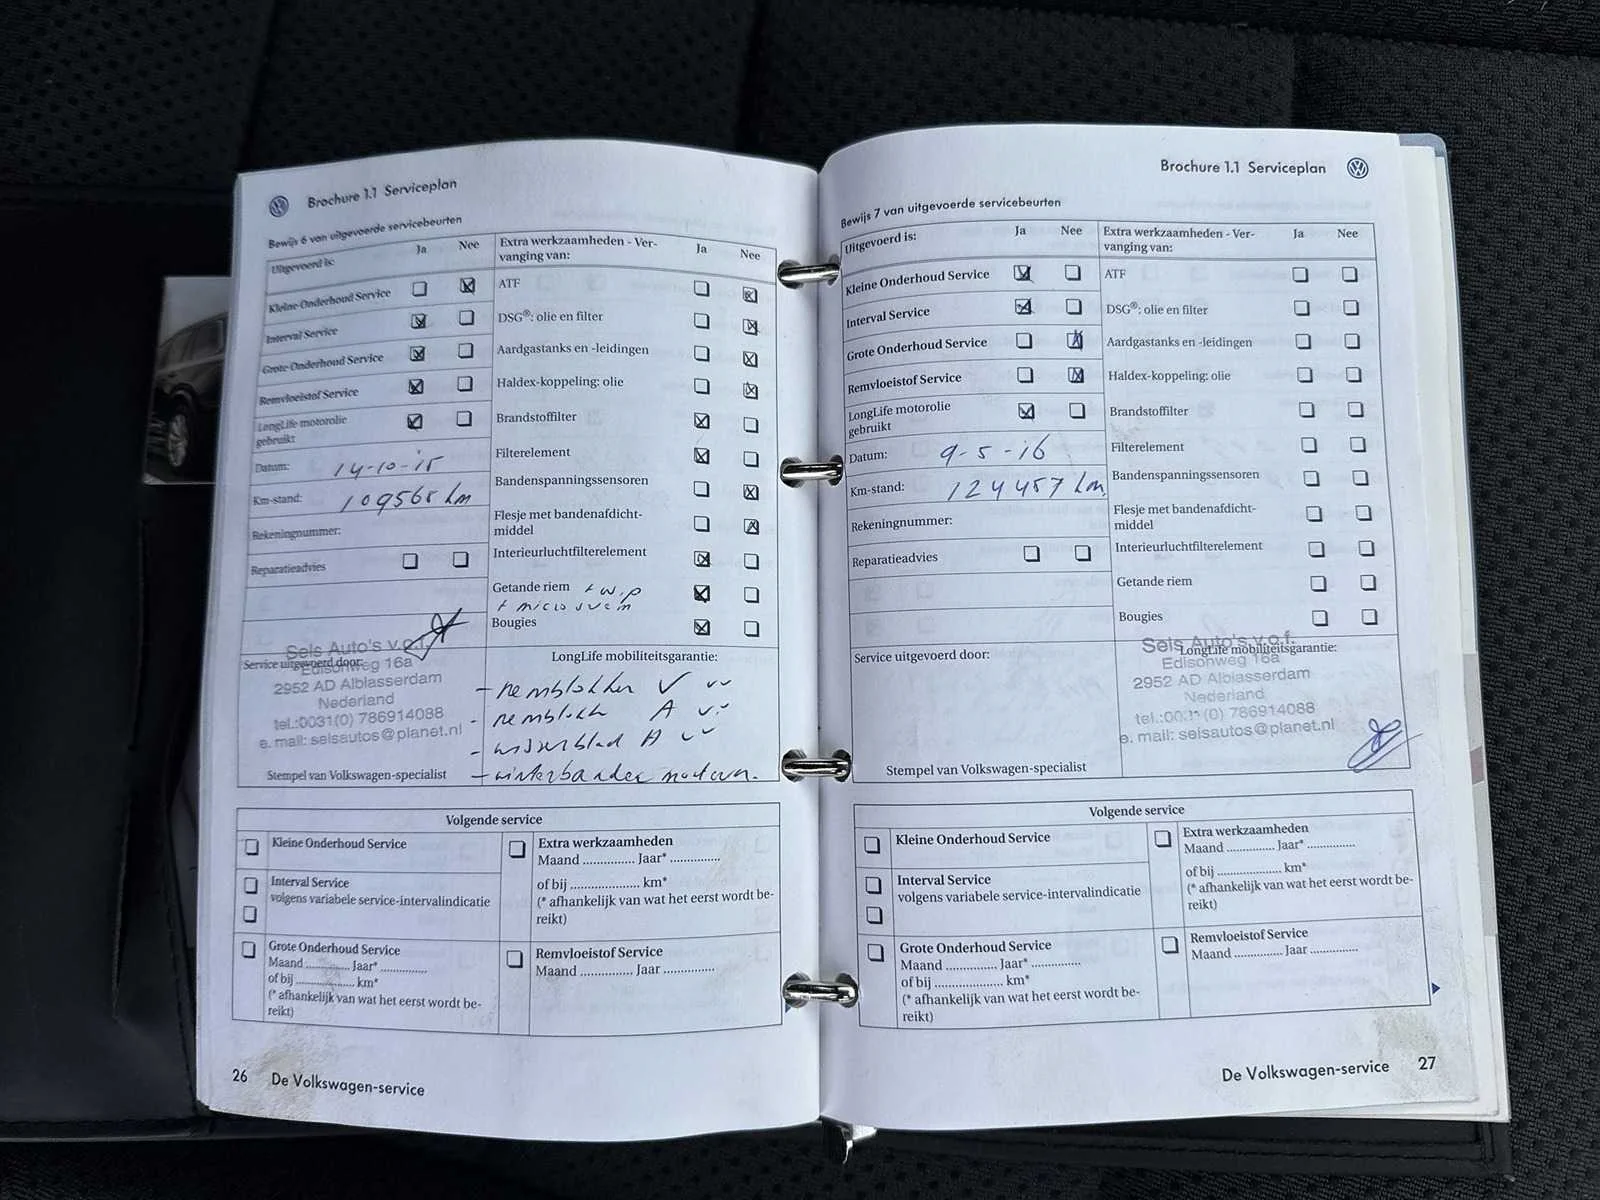 Brochure 1.1 Serviceplan
Bewijs 6 van uitgevoerde servicebeurten
Uitgevoerd is:
Ja
Nee
Kleine Onderhoud Service
Interval Service
Grote Onderhoud Service
Remvloeistof Service
LongLife motorolie
gebruikt
Datum: 14-10-15
Km-stand: 109565 km
Rekeningnummer:
Reparatieadvies
Extra werkzaamheden - Ver-
vanging van:
Ja
Nee
ATF
DSG®: olie en filter
Aardgastanks en -leidingen
Haldex-koppeling: olie
Brandstoffilter
Filterelement
Bandenspanningssensoren
Flesje met bandenafdicht-
middel
Interieurluchtfilterelement
Getande riem + w.p
+ micro
Bougies
Service uitgevoerd door:
Sels Auto's v.o.f.
Edisonweg 16a
2952 AD Alblasserdam
Nederland
tel.:0031(0) 786914088
e. mail: selsautos@planet.nl
Stempel van Volkswagen-specialist
LongLife mobiliteitsgarantie:
- remblokken V
- remblokken A
- wisserblad A
- winterbanden
Volgende service
Kleine Onderhoud Service
Interval Service
volgens variabele service-intervalindicatie
Grote Onderhoud Service
Maand .............. Jaar* ..............
of bij .................... km*
(* afhankelijk van wat het eerst wordt be-
reikt)
Extra werkzaamheden
Maand ............... Jaar* ...............
of bij ..................... km*
(* afhankelijk van wat het eerst wordt be-
reikt)
Remvloeistof Service
Maand .............. Jaar ...............
26 De Volkswagen-service
Brochure 1.1 Serviceplan
Bewijs 7 van uitgevoerde servicebeurten
Uitgevoerd is:
Ja
Nee
Kleine Onderhoud Service
Interval Service
Grote Onderhoud Service
Remvloeistof Service
LongLife motorolie
gebruikt
Datum: 9-5-16
Km-stand: 124457 km.
Rekeningnummer:
Reparatieadvies
Extra werkzaamheden - Ver-
vanging van:
Ja
Nee
ATF
DSG®: olie en filter
Aardgastanks en -leidingen
Haldex-koppeling: olie
Brandstoffilter
Filterelement
Bandenspanningssensoren
Flesje met bandenafdicht-
middel
Interieurluchtfilterelement
Getande riem
Bougies
Service uitgevoerd door:
Stempel van Volkswagen-specialist
LongLife mobiliteitsgarantie:
Sels Auto's v.o.f.
Edisonweg 16a
2952 AD Alblasserdam
Nederland
tel.:0031(0) 786914088
e. mail: selsautos@planet.nl
Volgende service
Kleine Onderhoud Service
Interval Service
volgens variabele service-intervalindicatie
Grote Onderhoud Service
Maand .............. Jaar* ..............
of bij .................... km*
(* afhankelijk van wat het eerst wordt be-
reikt)
Extra werkzaamheden
Maand .............. Jaar* ..............
of bij .................... km*
(* afhankelijk van wat het eerst wordt be-
reikt)
Remvloeistof Service
Maand .............. Jaar ..............
De Volkswagen-service 27